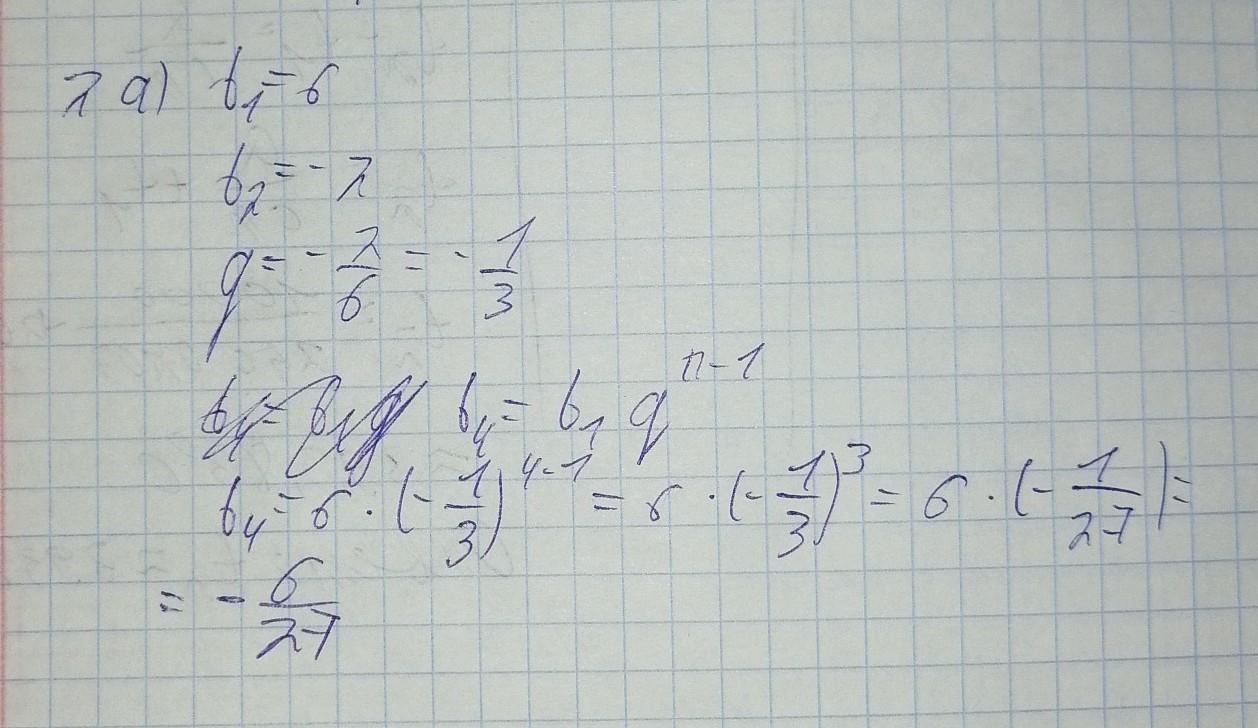 2 а) b₁ = 6
b₂ = - 2
q = - 2/6 = - 1/3
b₄ = b₁ q^(n-1)
b₄ = 6 · (- 1/3)^(4-1) = 6 · (- 1/3)^3 = 6 · (- 1/27) =
= - 6/27